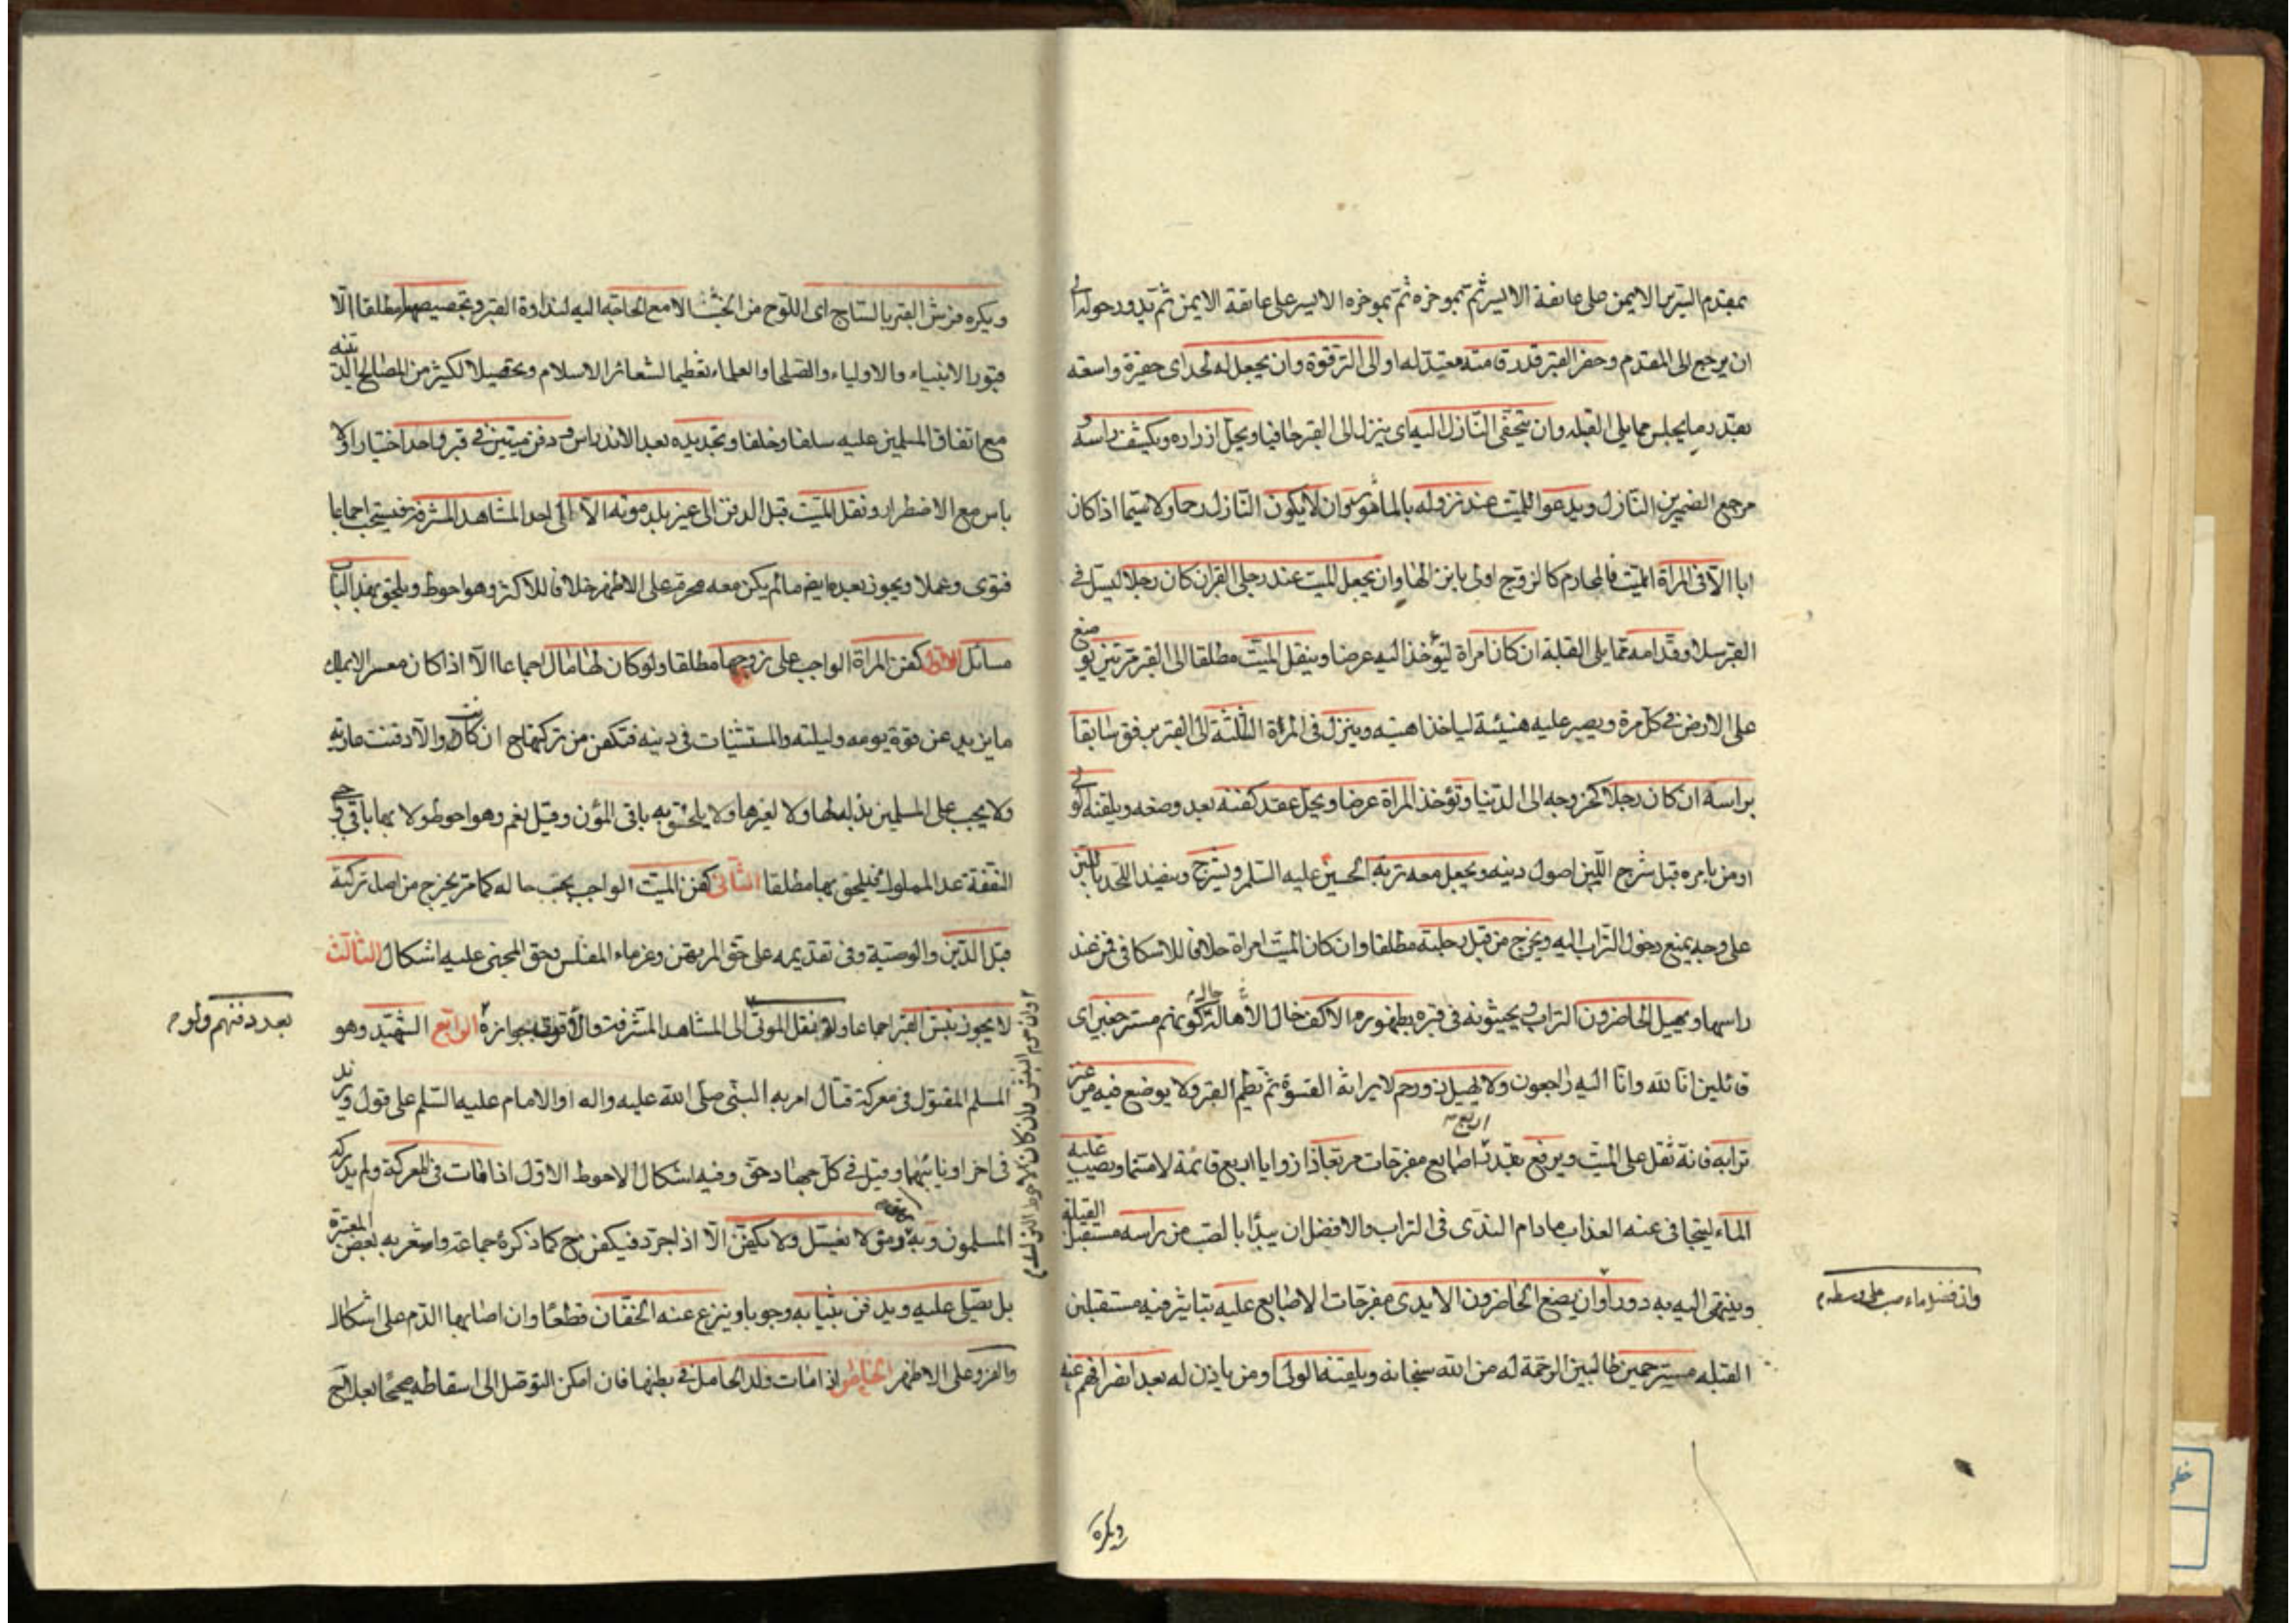 بمقدم السرير الايمن على عاتقه الايسر ثم بموخره ثم بموخره الايسر على عاتقه الايمن ثم يدور حوله الى
ان يرجع الى المقدم وحفر القبر قدر قامته معتدله او الى الترقوة وان يجعل له لحد اى حفيرة واسعة
بقدر ما يجلس مما يلى القبله وان يتحفى النازل اليه اى ينزل الى القبر حافيا ويحل ازراره ويكشف راسه و
مرجع الضميرين النازل ويدعوا للميت عند نزوله بالماثور وان لا يكون النازل رحما ولا سيما اذا كان
ابا الا فى المراة الميت فالمحارم كالزوج اولى بانزالها وان يجعل الميت عند رجلى القبر ان كان رجلا ليسل فى
القبر سلا وقدامه مما يلى القبلة ان كان امراة ليؤخذ اليه عرضا وينقل الميت مطلقا الى القبر مرتين يوضع
على الارض فى كل مرة ويصبر عليه هنيئة لياخذ اهبته وينزل فى المرة الثلثة الى القبر برفق سابقا
براسه ان كان رجلا كخروجه الى الدنيا وتؤخذ المراة عرضا ويحل عقد كفنه بعد وضعه ويلقنه الولى
او من يامره قبل شرج اللبن اصول دينه ويجعل معه تربة الحسين عليه السلم ويشرج وينضد اللحد باللبن
على وجه يمنع دخول التراب اليه ويخرج من قبل رجليه مطلقا وان كان الميت امراة خلافا للاسكافى فمن عند
راسها ويهيل الحاضرون التراب ويحيثونه فى قبره بظهور الاكف حال الاهالة كونهم مسترجعين اى
قائلين انا لله وانا اليه راجعون ولا يهيل ذو رحم لايراثه القسوة ثم تطم القبر ولا يوضع فيه من غير
ترابه فانه ثقل على الميت ويرفع بقدر اربع اصابع مفرجات مربعا ذا زوايا اربع قائمة لا مسنما ويصب عليه
الماء ليتجافى عنه العذاب ما دام الندى فى التراب والافضل ان يبدأ بالصب من راسه مستقبل القبلة
وينتهى اليه به دورا وان يضع الحاضرون الايدى مفرجات الاصابع عليه بتاثير فيه مستقبلين
القبله مسترحمين طالبين الرحمة له من الله سبحانه ويلقنه الولى او من ياذن له بعد انصرافهم عنه
وان فضل ماء صب على وسطه
ويكره
ويكره فرش القبر بالساج اى اللوح من الخشب الا مع الحاجة اليه لنداوة القبر وتجصيصها مطلقا الا
قبور الانبياء والاولياء والصلحا والعلماء تعظيما لشعائر الاسلام وتحصيلا لكثير من المصالح الدينيه
مع اتفاق المسلمين عليه سلفا وخلفا وتجديده بعد الاندراس ودفن ميتين فى قبر واحد اختيارا ولا
باس مع الاضطرار ونقل الميت قبل الدفن الى غير بلد موته الا الى احد المشاهد المشرفة فيستحب اجماعا
فتوى وعملا ويجوز بعده ايض ما لم يكن معه محرم على الاظهر خلافا للاكثر وهو احوط ويلحق بهذ الباب
مسائل الاولى كفن المراة الواجب على زوجها مطلقا ولو كان لها مال اجماعا الا اذا كان معسرا لا يملك
ما يزيد عن قوة يومه وليلته والمستثنيات فى دينه فتكفن من تركتها ح ان كانت والا دفنت عارية
ولا يجب على المسلمين بذله لها ولا لغيرها ولا يلحق به باقى المؤن وقيل نعم وهو احوط ولا بها باقى واجبى
النفقة عدا المملوك فيلحق بها مطلقا الثانى كفن الميت الواجب بحسب حاله كما مر يخرج من اصل تركته
قبل الدين والوصية وفى تقديمه على حق المرتهن وغرماء المفلس وحق المجنى عليه اشكال الثالث
لا يجوز نبش القبر اجماعا ولو نقل الموتى الى المشاهد المشرفة والاقوى جوازه الرابع الشهيد وهو
المسلم المقتول فى معركة قتال امر به النبى صلى الله عليه واله او الامام عليه السلم على قول وزيد
فى اخر او نايبهما وقيل فى كل جهاد حق وفيه اشكال الاحوط الاول اذا مات فى المعركة ولم يدركه
المسلمون وبه رمق لا يغسل ولا يكفن الا اذا جرد فيكفن ح كما ذكره جماعة واشعر به بعض المعتبرة
بل يصلى عليه ويدفن بثيابه وجوبا وينزع عنه الخفان قطعا وان اصابهما الدم على اشكال
والفرو على الاظهر الخامس اذا مات ولد الحامل فى بطنها فان امكن التوصل الى اسقاطه صحيحا بعلاج
بعد دفنهم ولو